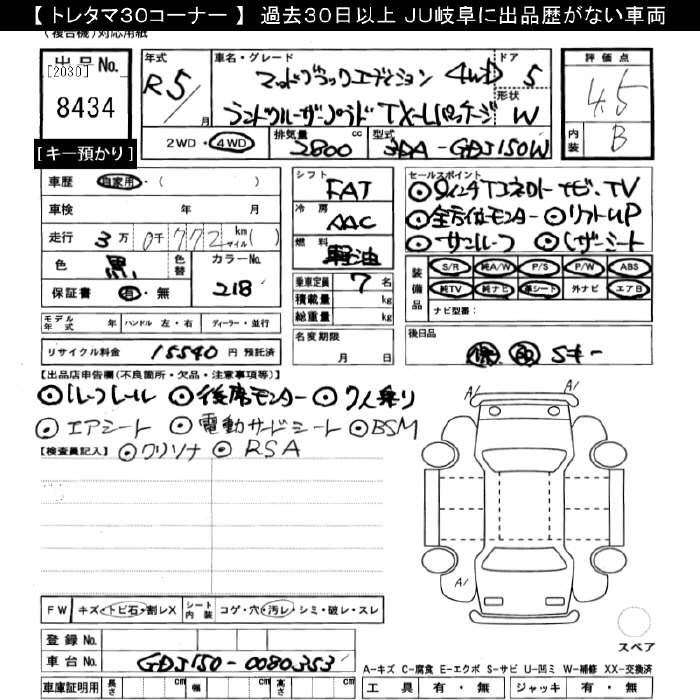 【 トレタマ30コーナー 】 過去30日以上 JU岐阜に出品歴がない車両
(複合機)対応用紙
出品No. [2030] 8434
[キー預かり]
年式 R5/ 月
車名・グレード マットブラックエディション 4WD
ランドクルーザープラド TX-Lパッケージ
ドア 5
形状 W
評価点 4.5
内装 B
2WD・4WD 排気量 2800 cc 型式 3DA-GDJ150W
車歴 自家用・( )
車検 年 月
走行 3万0千772 km マイル( )
色 黒 色替 カラーNo. 218
保証書 有・無
シフト FAT
冷房 AAC
燃料 軽油
乗車定員 7 名
積載量 kg
総重量 kg
セールスポイント
◎9インチTコネクトナビ、TV
◎全方位モニター ◎リフトUP
◎サンルーフ ◎レザーシート
装備品 S/R 純A/W P/S P/W ABS
純TV 純ナビ 革シート 外ナビ エアB
ナビ型番:
モデル年式 年 ハンドル 左・右 ディーラー・並行
リサイクル料金 15540 円 預託済
名変期限 月 日
後日品 保 取 Sキー
【出品店申告欄(不良箇所・欠品・注意事項等)】
◎ルーフレール ◎後席モニター ◎7人乗り
◎エアシート ◎電動サードシート ◎BSM
【検査員記入】 ◎クリソナ ◎RSA
A/ A/
A/
FW キズ・トビ石・割レX シート内装 コゲ・穴・汚レ・シミ・破レ・スレ
登録No.
車台No. GDJ150-0080353
スペア
A-キズ C-腐食 E-エクボ S-サビ U-凹ミ W-補修 XX-交換済
車庫証明用 長さ cm 幅 cm 高さ cm 工具 有・無 ジャッキ 有・無